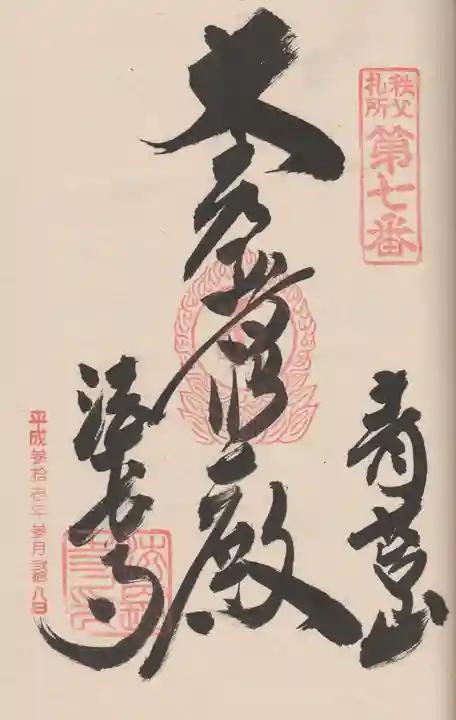 秩父
札所
第七番
青苔山
大光普照殿
法長寺
平成参拾壱年参月弐拾八日